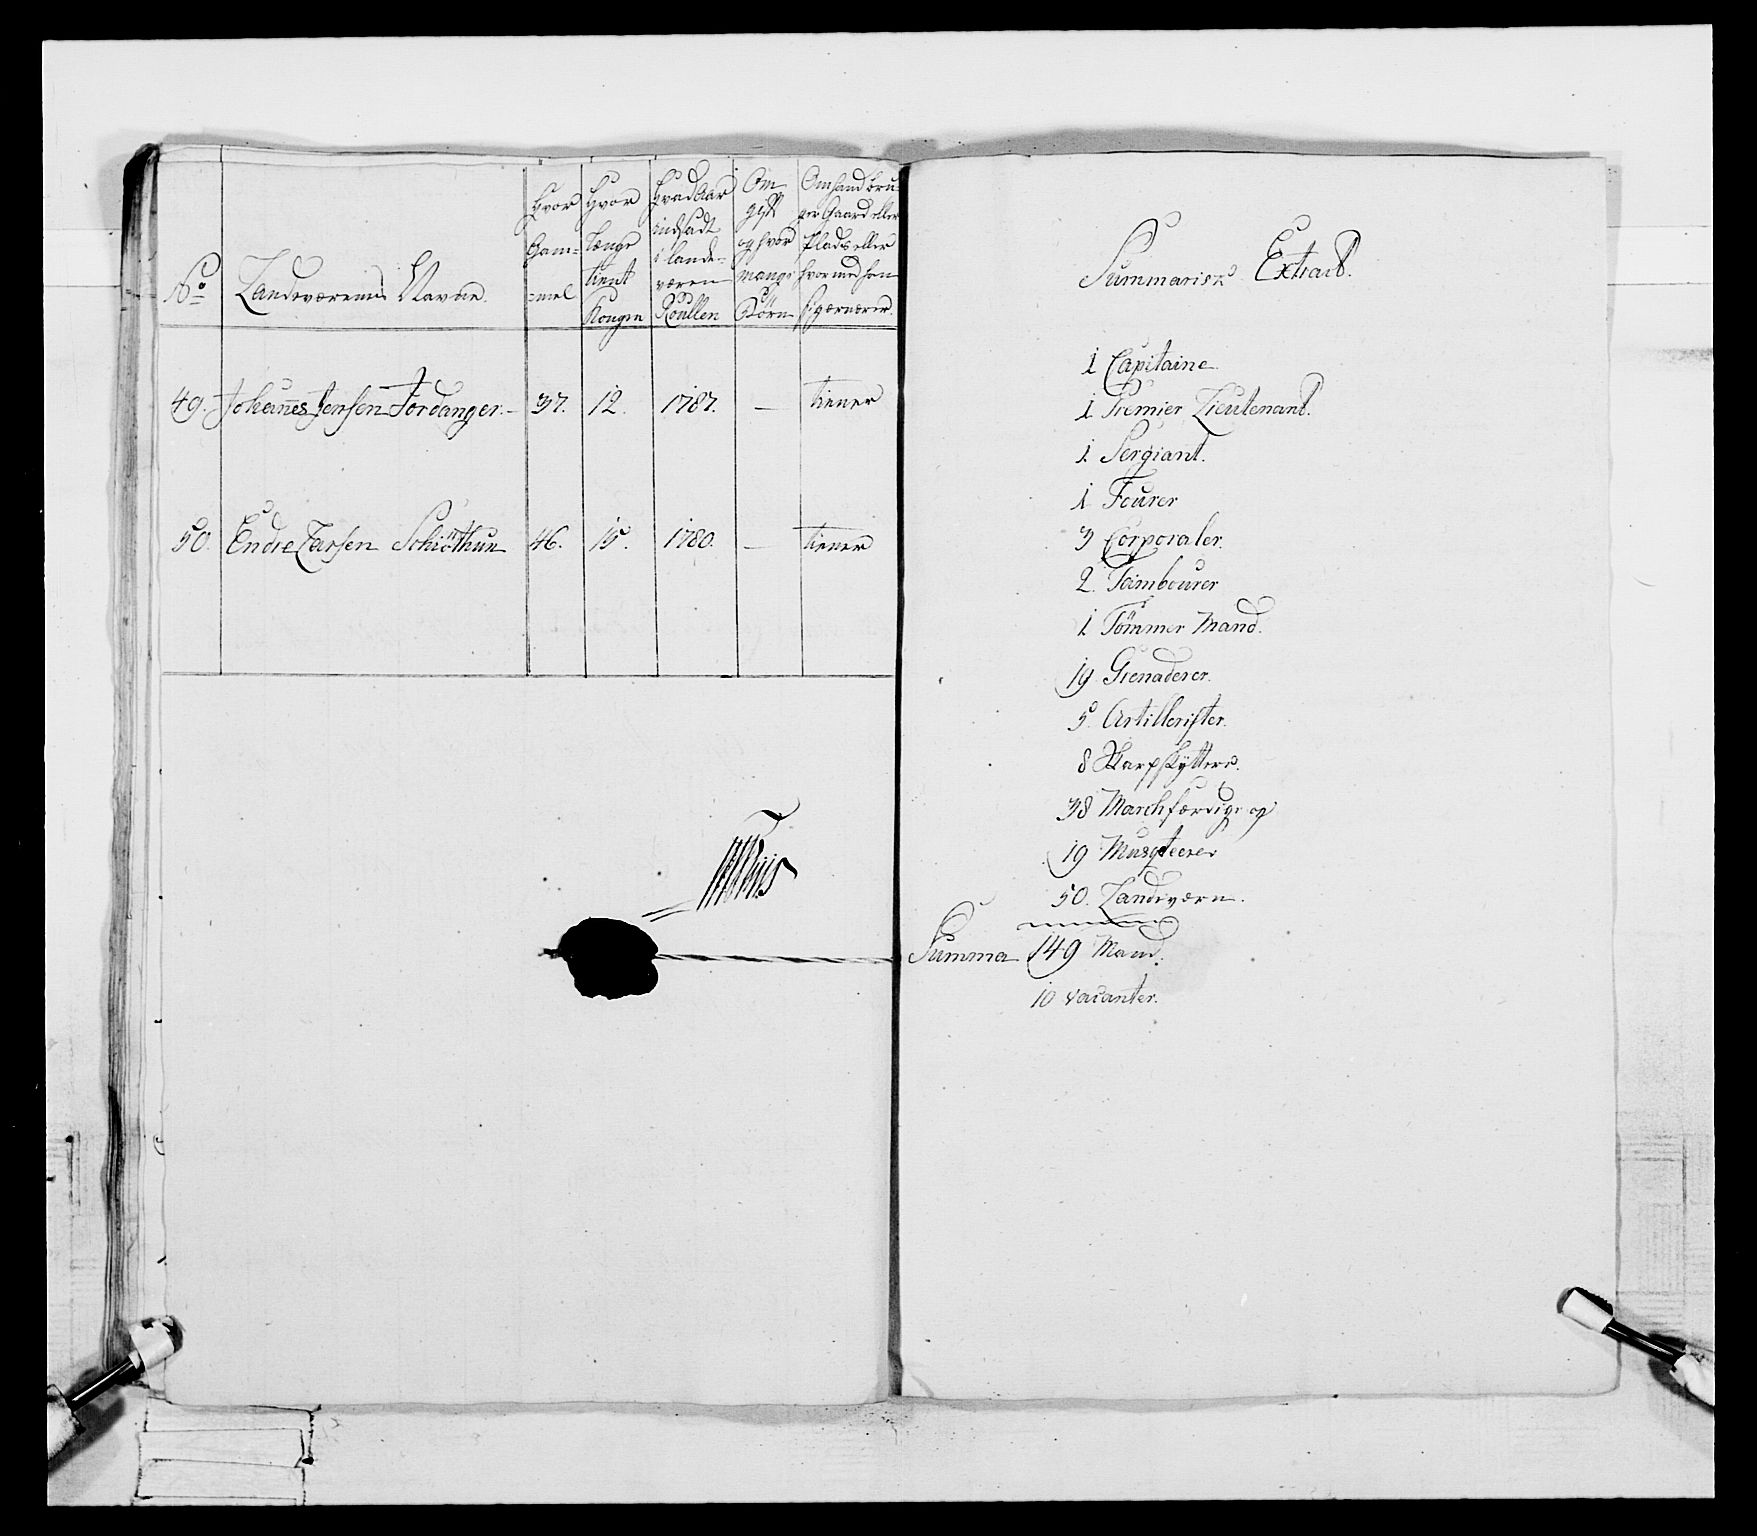 No
Landeværenes Navne.
Hvor
Gam=
=mel
Hvor
længe
tient
Kongen
Hvad Aar
indsadt
i lande=
væren
Roullen
Om
gift
og hvor
mange
Børn
Om hand bru=
ger Gaard eller
Plads eller
hvormed han
sig ernærer.
49. Johannes Jensen Fordanger.- 37. 12. 1787. — tiener
50. Endre Larsen Schiöthun 46. 15. 1780. — tiener
Summarisk Extract.
1 Capitaine
1 Premier Lieutenant.
1. Sergiant.
1 Fourer
3 Corporaler.
2. Tambourer
1 Tömmer Mand.
19 Grenaderer.
5. Artillerister.
8 Skarpskyttere.
38 Marchfærdige og
19 Musqteerer
50. Landeværn.
Summa 149 Mand.
10 vacanter.